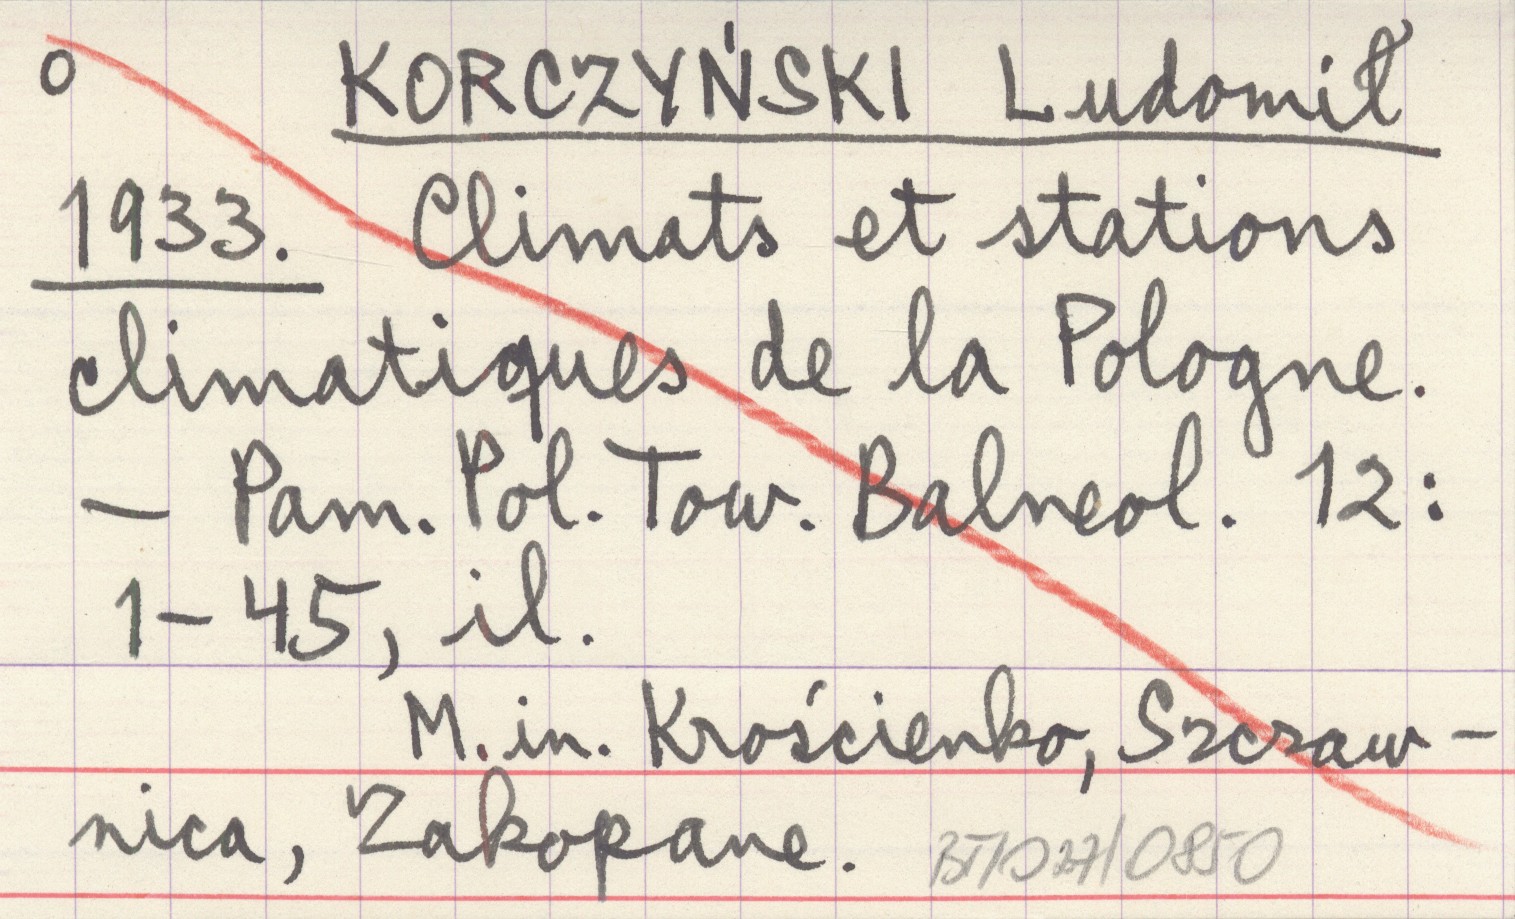 o KORCZYŃSKI Ludomił
1933. Climats et stations
climatiques de la Pologne.
– Pam. Pol. Tow. Balneol. 12:
1–45, il.
M. in. Krościenko, Szczaw-
nica, Zakopane.
0850